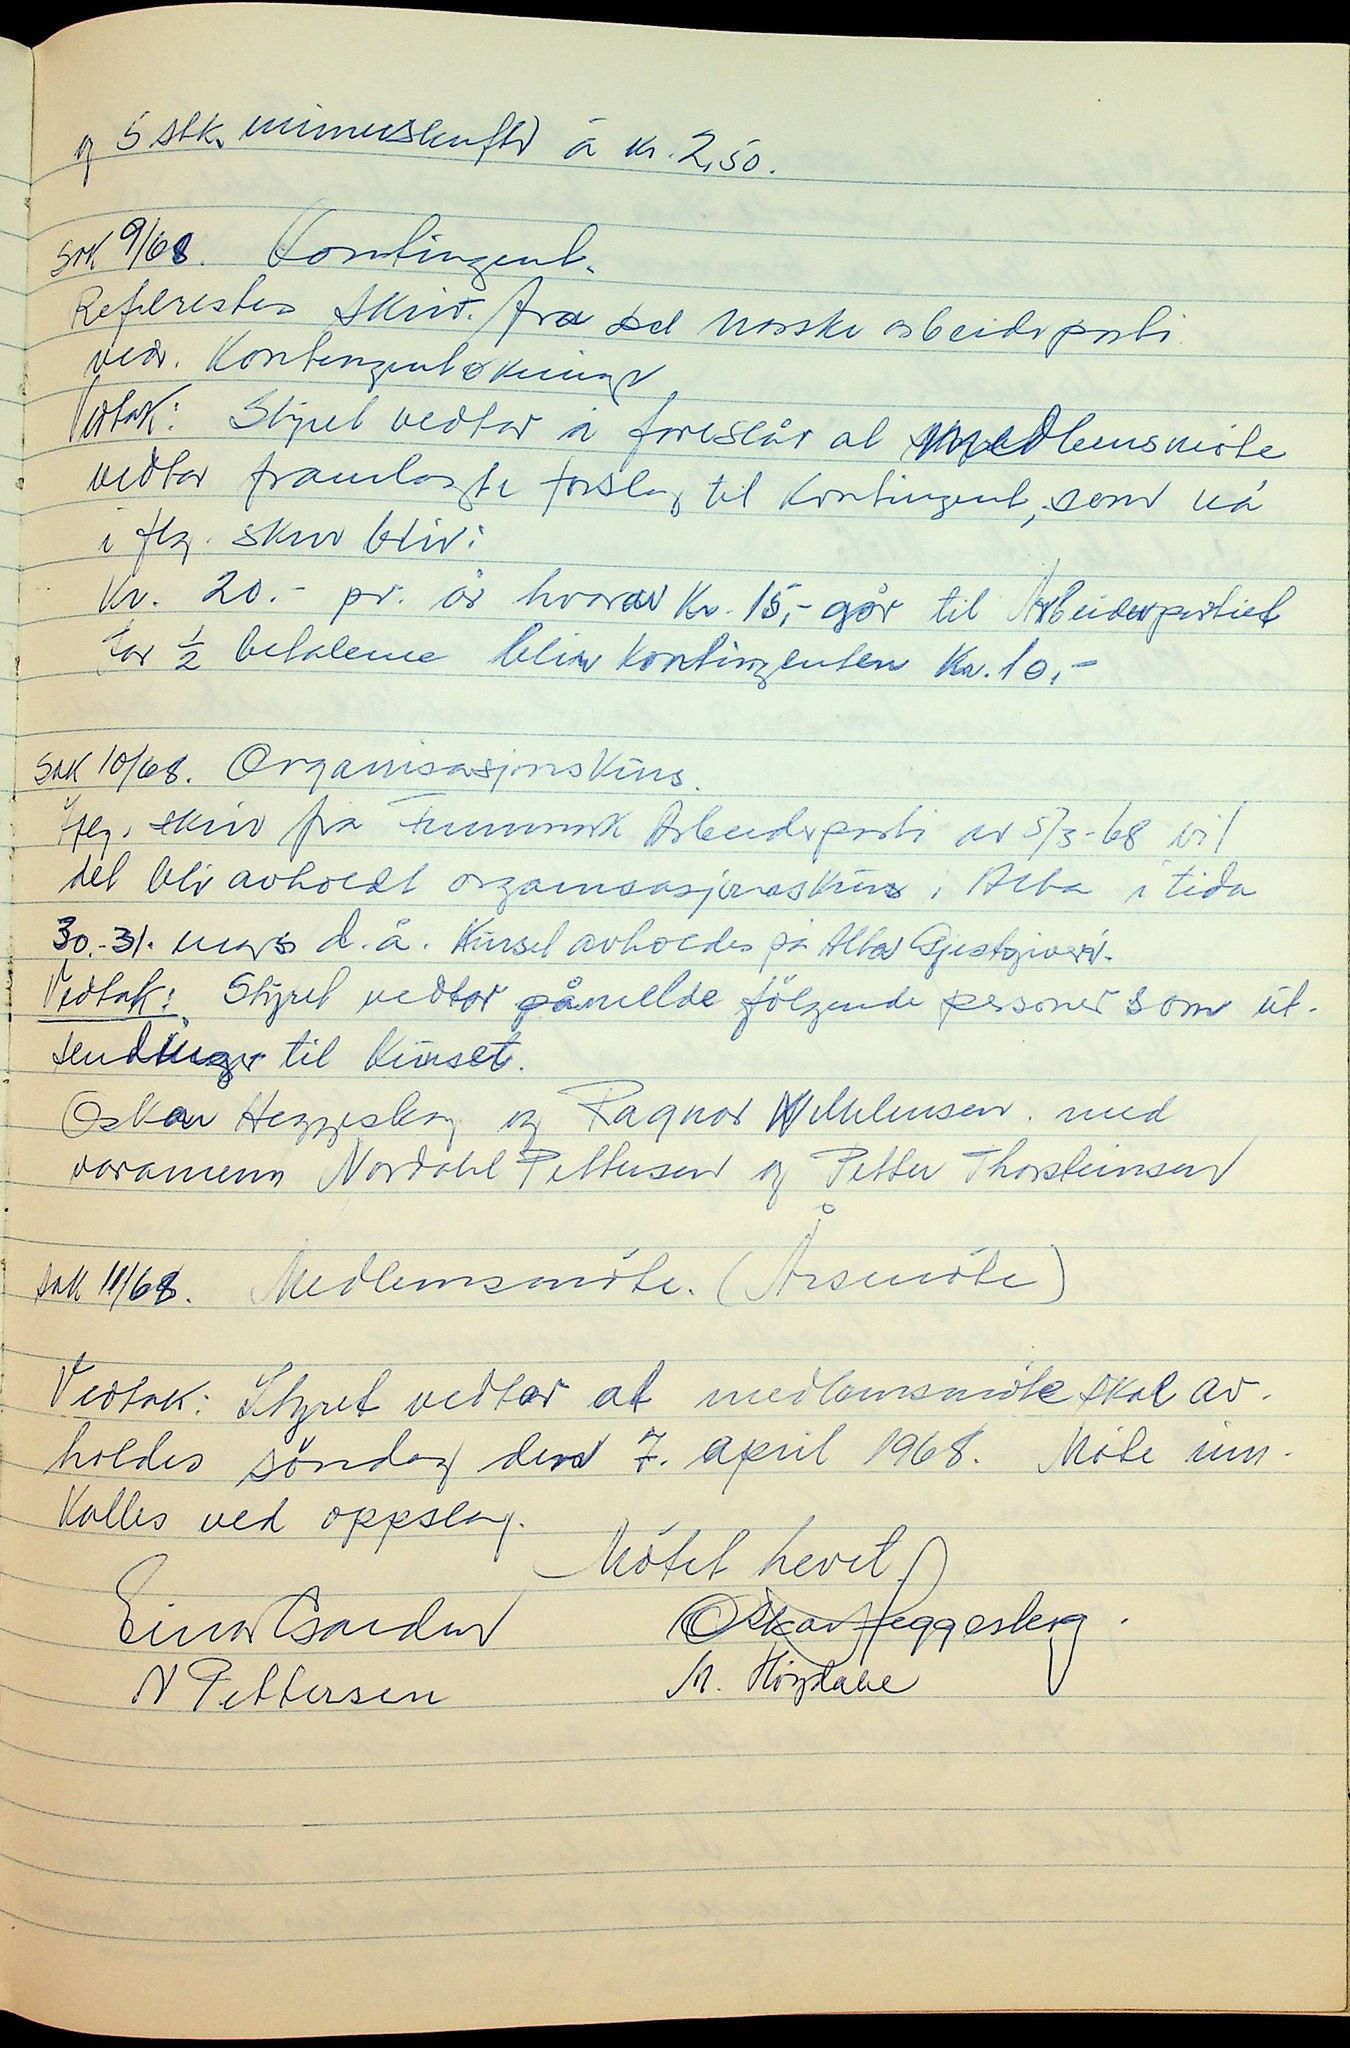 og 5 stk. minneskrifter à kr. 2,50.
Sak 9/68. Kontingent.
Referertes skriv. fra det norske arbeiderparti
vedr. Kontengentökning
Vedtak: Styret vedtar å foreslår at medlemsmöte
vedtar framlagte forslag til Kontingent, som nå
i flg. skriv blir:
Kr. 20.- pr. år hvorav Kr. 15,- går til Arbeiderpartiet
for ½ betalene blir kontingenten Kr. 10,-
Sak 10/68. Organisasjonskurs.
Iflg. skriv fra Finnmark Arbeiderparti av 5/3-68 vil
det bli avholdt organisasjonskurs i Alta i tida
30.-31. mars d.å. Kurset avholdes på Alta Gjestgiveri.
Vedtak: Styret vedtar påmelde fölgende personer som ut-
sendinger til Kurset.
Oskar Heggesberg og Ragnar Wilhelmsen. med
varamenn Nordahl Pettersen og Petter Thorsteinsen
Sak 11/68. Medlemsmöte. (Årsmöte)
Vedtak: Styret vedtar at medlemsmöte skal av-
holdes söndag den 7. april 1968. Möte inn-
Kalles ved oppslag.
Mötet hevet.
Einar Oskar Heggesberg.
N Pettersen M.